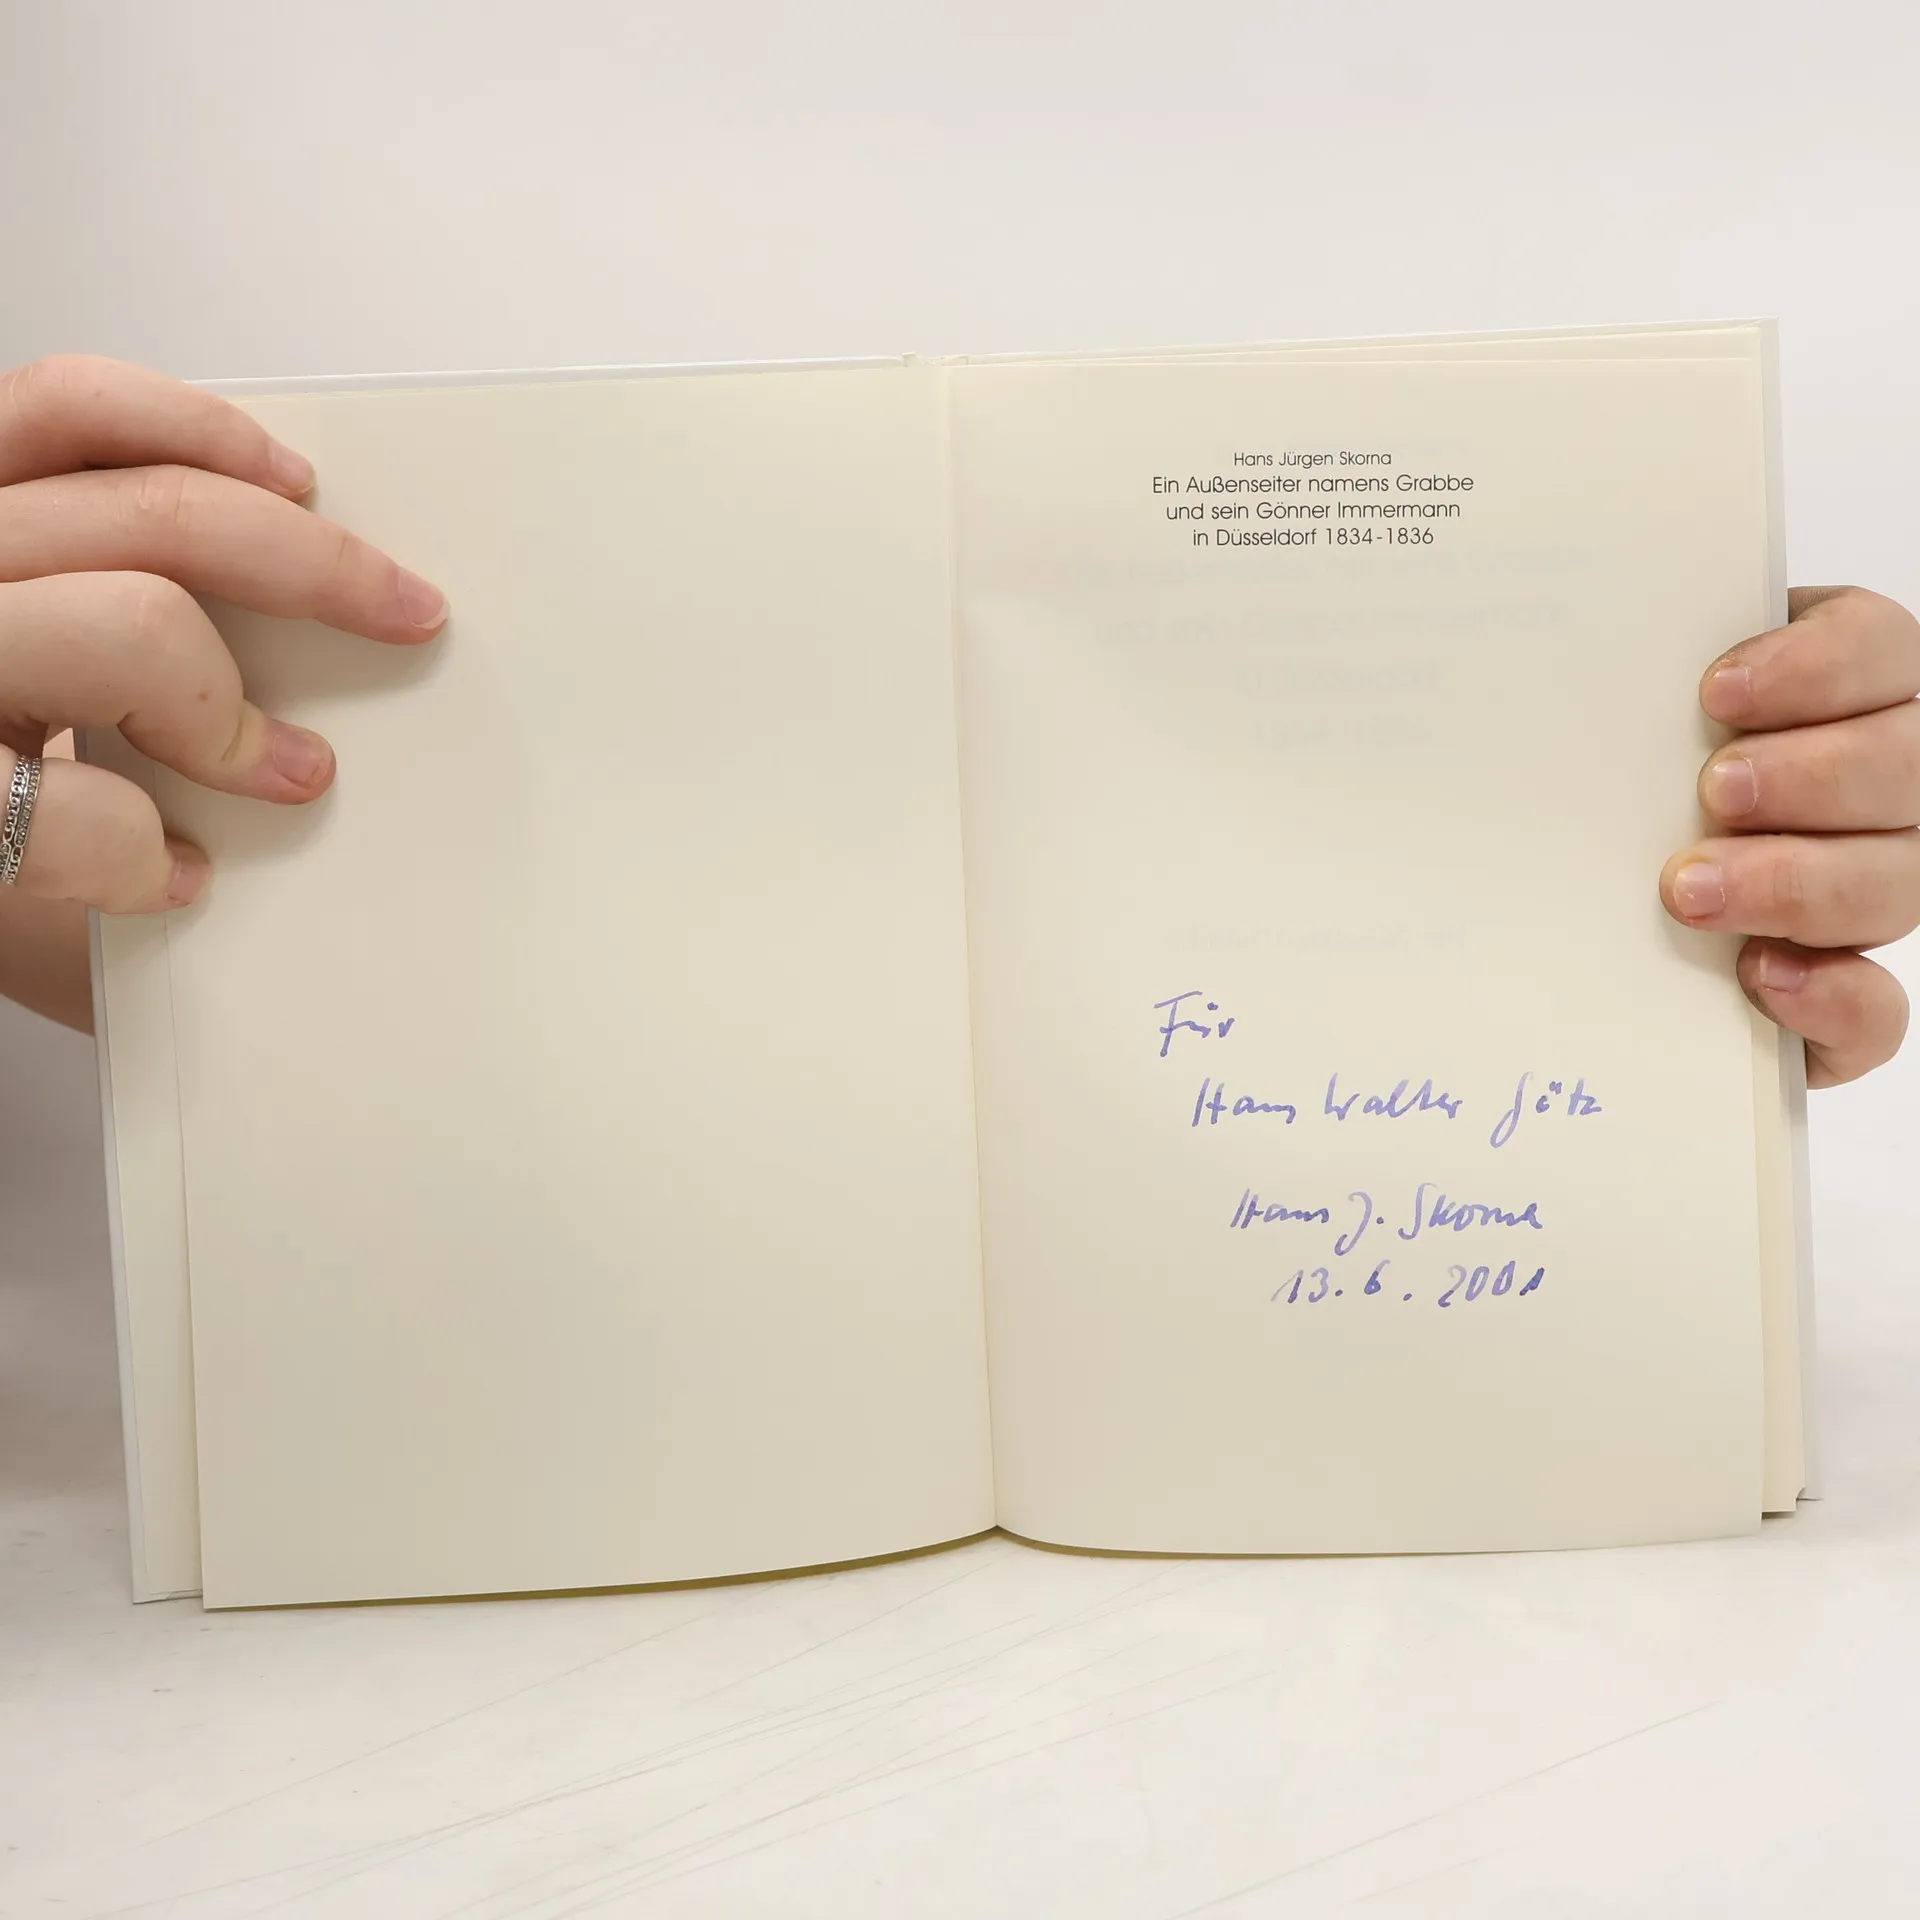 Hans Jürgen Skorna
Ein Außenseiter namens Grabbe
und sein Gönner Immermann
in Düsseldorf 1834-1836
Für
Hans Walter Götz
Hans J. Skorna
13.6.2001